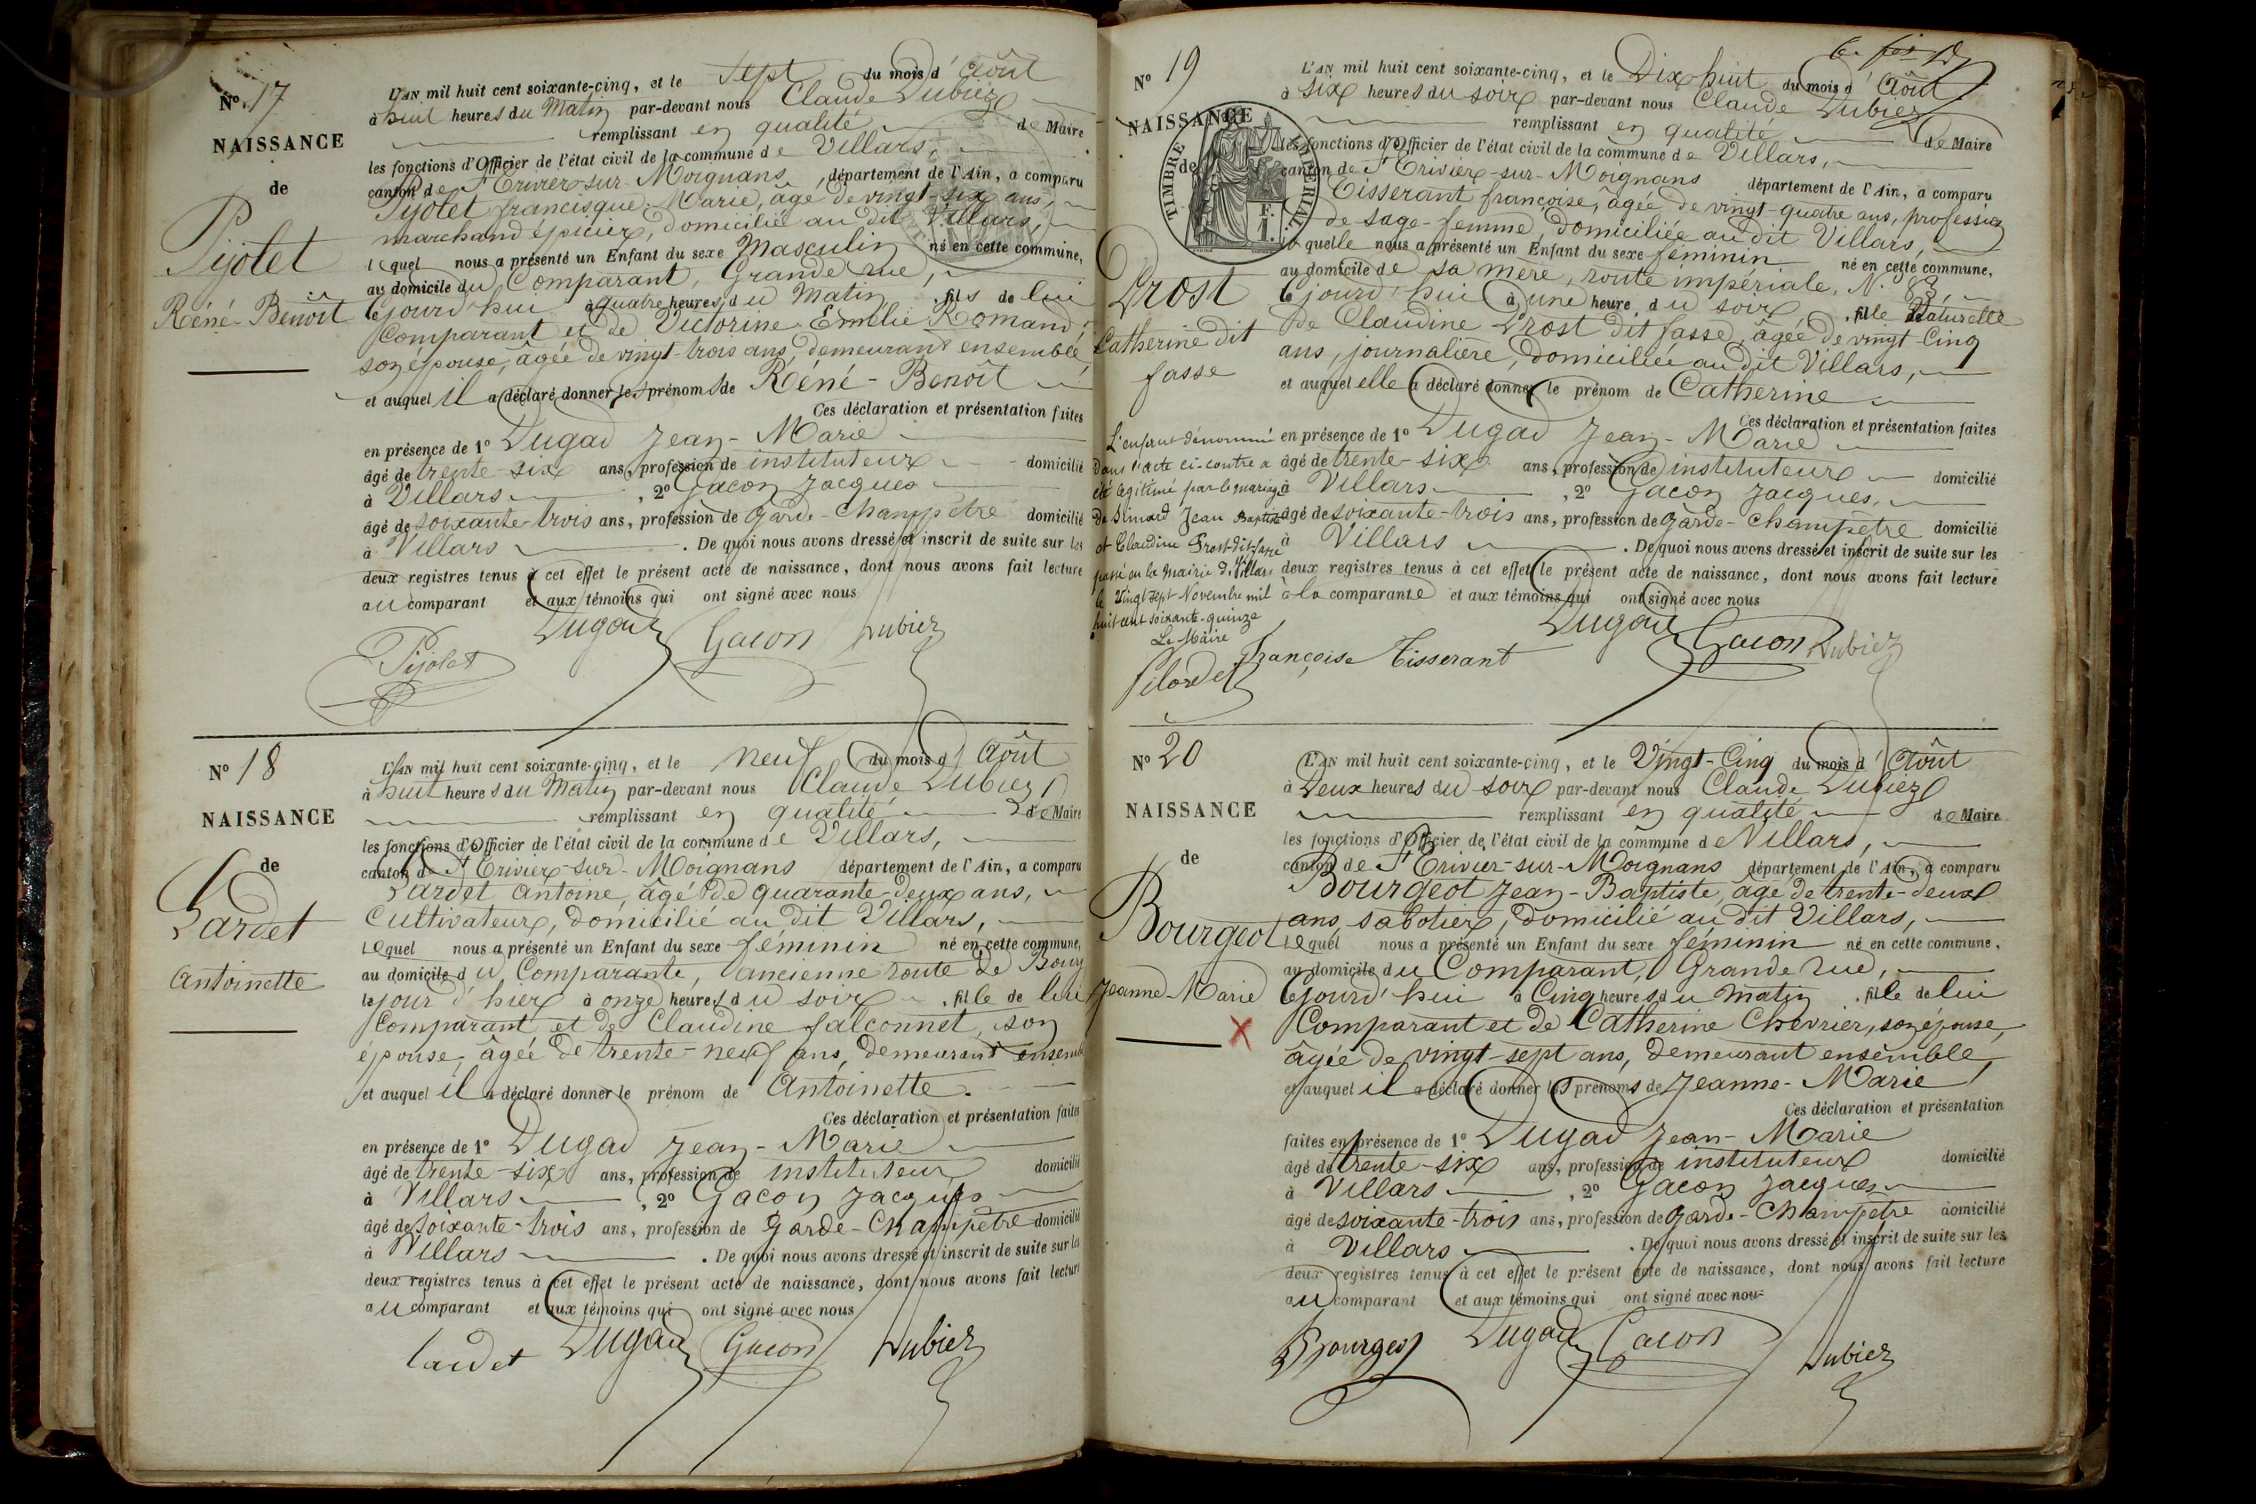 N° 17
NAISSANCE
de
Pijolet
Réné-Benoît
L'AN mil huit cent soixante-cinq, et le Sept du mois d'Août
à huit heures du Matin par-devant nous Claude Dubiez
remplissant en qualité de Maire
les fonctions d'Officier de l'état civil de la commune de Villars,
canton de St Trivier-sur-Moignans, département de l'Ain, a comparu
Pijolet francisque-Marie, âgé de vingt-six ans,
marchand épicier, domicilié au dit Villars,
lequel nous a présenté un Enfant du sexe Masculin né en cette commune,
au domicile du Comparant, Grande rue,
cejourd'hui à quatre heures du Matin, fils de lui
Comparant et de Victorine-Emélie Romand,
son épouse, âgée de vingt-trois ans, demeurant ensemble,
et auquel il a déclaré donner les prénoms de Réné-Benoît
Ces déclaration et présentation faites
en présence de 1° Dugad Jean-Marie
âgé de trente-six ans, profession de instituteur domicilié
à Villars, 2° Gacon Jacques
âgé de soixante-trois ans, profession de Garde-Champêtre domicilié
à Villars. De quoi nous avons dressé et inscrit de suite sur les
deux registres tenus à cet effet le présent acte de naissance, dont nous avons fait lecture
au comparant et aux témoins qui ont signé avec nous
Dugad Gacon Dubiez
Pijolet
N° 18
NAISSANCE
de
Lardet
Antoinette
L'AN mil huit cent soixante-cinq, et le neuf du mois d'Août
à huit heures du Matin par-devant nous Claude Dubiez
remplissant en qualité de Maire
les fonctions d'Officier de l'état civil de la commune de Villars,
canton de St Trivier-sur-Moignans département de l'Ain, a comparu
Lardet Antoine, âgé de quarante-deux ans,
Cultivateur, domicilié au dit Villars,
lequel nous a présenté un Enfant du sexe féminin né en cette commune,
au domicile du Comparant, ancienne route de Bourg
le jour d'hier à onze heures du soir, fille de lui
Comparant et de Claudine falconnet, son
épouse, âgée de trente-neuf ans, demeurant ensemble
et auquel il a déclaré donner le prénom de Antoinette.
Ces déclaration et présentation faites
en présence de 1° Dugad Jean-Marie
âgé de trente-six ans, profession de instituteur domicilié
à Villars, 2° Gacon Jacques
âgé de soixante-trois ans, profession de Garde-Champêtre domicilié
à Villars. De quoi nous avons dressé et inscrit de suite sur les
deux registres tenus à cet effet le présent acte de naissance, dont nous avons fait lecture
au comparant et aux témoins qui ont signé avec nous
Lardet Dugad Gacon Dubiez
N° 19
NAISSANCE
de
TIMBRE IMPERIAL
1 F.
Prost
Catherine dit
fasse
L'AN mil huit cent soixante-cinq, et le Dix huit du mois d'Août
à six heures du soir par-devant nous Claude Dubiez
remplissant en qualité de Maire
les fonctions d'Officier de l'état civil de la commune de Villars,
canton de St Trivier-sur-Moignans département de l'Ain, a comparu
Tisserant françoise, âgée de vingt-quatre ans, profession
de sage-femme, domiciliée au dit Villars,
laquelle nous a présenté un Enfant du sexe féminin né en cette commune,
au domicile de sa mère, route impériale, N° 83,
cejourd'hui à une heure du soir, fille Naturelle
de Claudine Prost dit fasse, âgée de vingt-Cinq
ans, journalière, domiciliée au dit Villars,
et auquel elle a déclaré donner le prénom de Catherine
Ces déclaration et présentation faites
en présence de 1° Dugad Jean-Marie
âgé de trente-six ans, profession de instituteur domicilié
à Villars, 2° Gacon Jacques,
âgé de soixante-trois ans, profession de Garde-Champêtre domicilié
à Villars. De quoi nous avons dressé et inscrit de suite sur les
deux registres tenus à cet effet le présent acte de naissance, dont nous avons fait lecture
à la comparante et aux témoins qui ont signé avec nous
Dugad Gacon Dubiez
Françoise Tisserant
L'enfant dénommé
dans l'acte ci-contre a
été légitimé par le mariage
de Simard Jean Baptiste
et Claudine Prost-dit-fasse
passé en la mairie de Villars
le Vingt sept Novembre mil
huit cent soixante-quinze
Le Maire
N° 20
NAISSANCE
de
Bourgeot
Jeanne-Marie
L'AN mil huit cent soixante-cinq, et le Vingt-Cinq du mois d'Août
à Deux heures du soir par-devant nous Claude Dubiez
remplissant en qualité de Maire
les fonctions d'Officier de l'état civil de la commune de Villars,
canton de St Trivier-sur-Moignans département de l'Ain, a comparu
Bourgeot Jean-Baptiste, âgé de trente-deux
ans, sabotier, domicilié au dit Villars,
lequel nous a présenté un Enfant du sexe féminin né en cette commune,
au domicile du Comparant, Grande rue,
cejourd'hui à Cinq heures du matin, fille de lui
Comparant et de Catherine Chevrier, son épouse,
âgée de vingt-sept ans, demeurant ensemble,
et auquel il a déclaré donner les prénoms de Jeanne-Marie
Ces déclaration et présentation
faites en présence de 1° Dugad Jean-Marie
âgé de trente-six ans, profession de instituteur domicilié
à Villars, 2° Gacon Jacques
âgé de soixante-trois ans, profession de Garde-Champêtre domicilié
à Villars. De quoi nous avons dressé et inscrit de suite sur les
deux registres tenus à cet effet le présent acte de naissance, dont nous avons fait lecture
au comparant et aux témoins qui ont signé avec nous
Bourgeot Dugad Gacon Dubiez